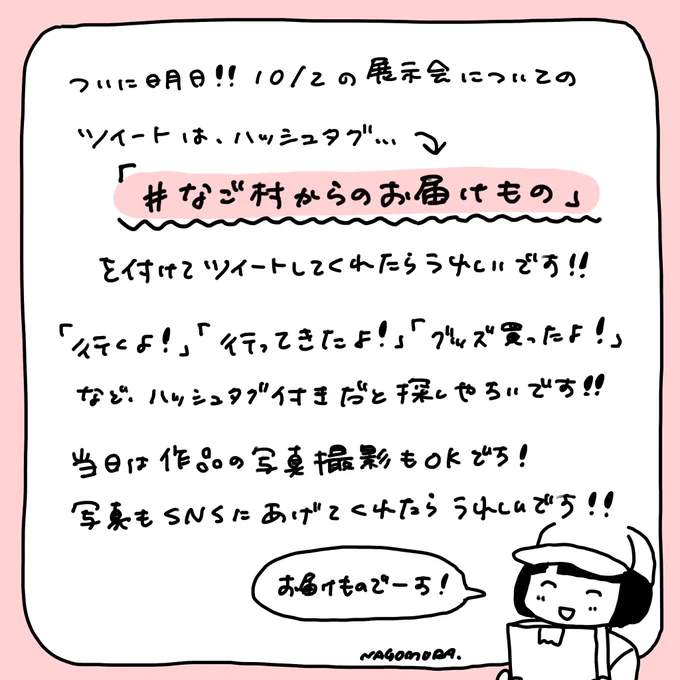 ついに明日!! 10/2の展示会についての
ツイートは、ハッシュタグ…
「#なご村からのお届けもの」
を付けてツイートしてくれたらうれしいです!!
「行くよ!」「行ってきたよ!」「グッズ買ったよ!」
など、ハッシュタグ付きだと探しやすいです!!
当日は作品の写真撮影もOKです!
写真もSNSにあげてくれたらうれしいです!!
お届けものでーす!
NAGOMURA.